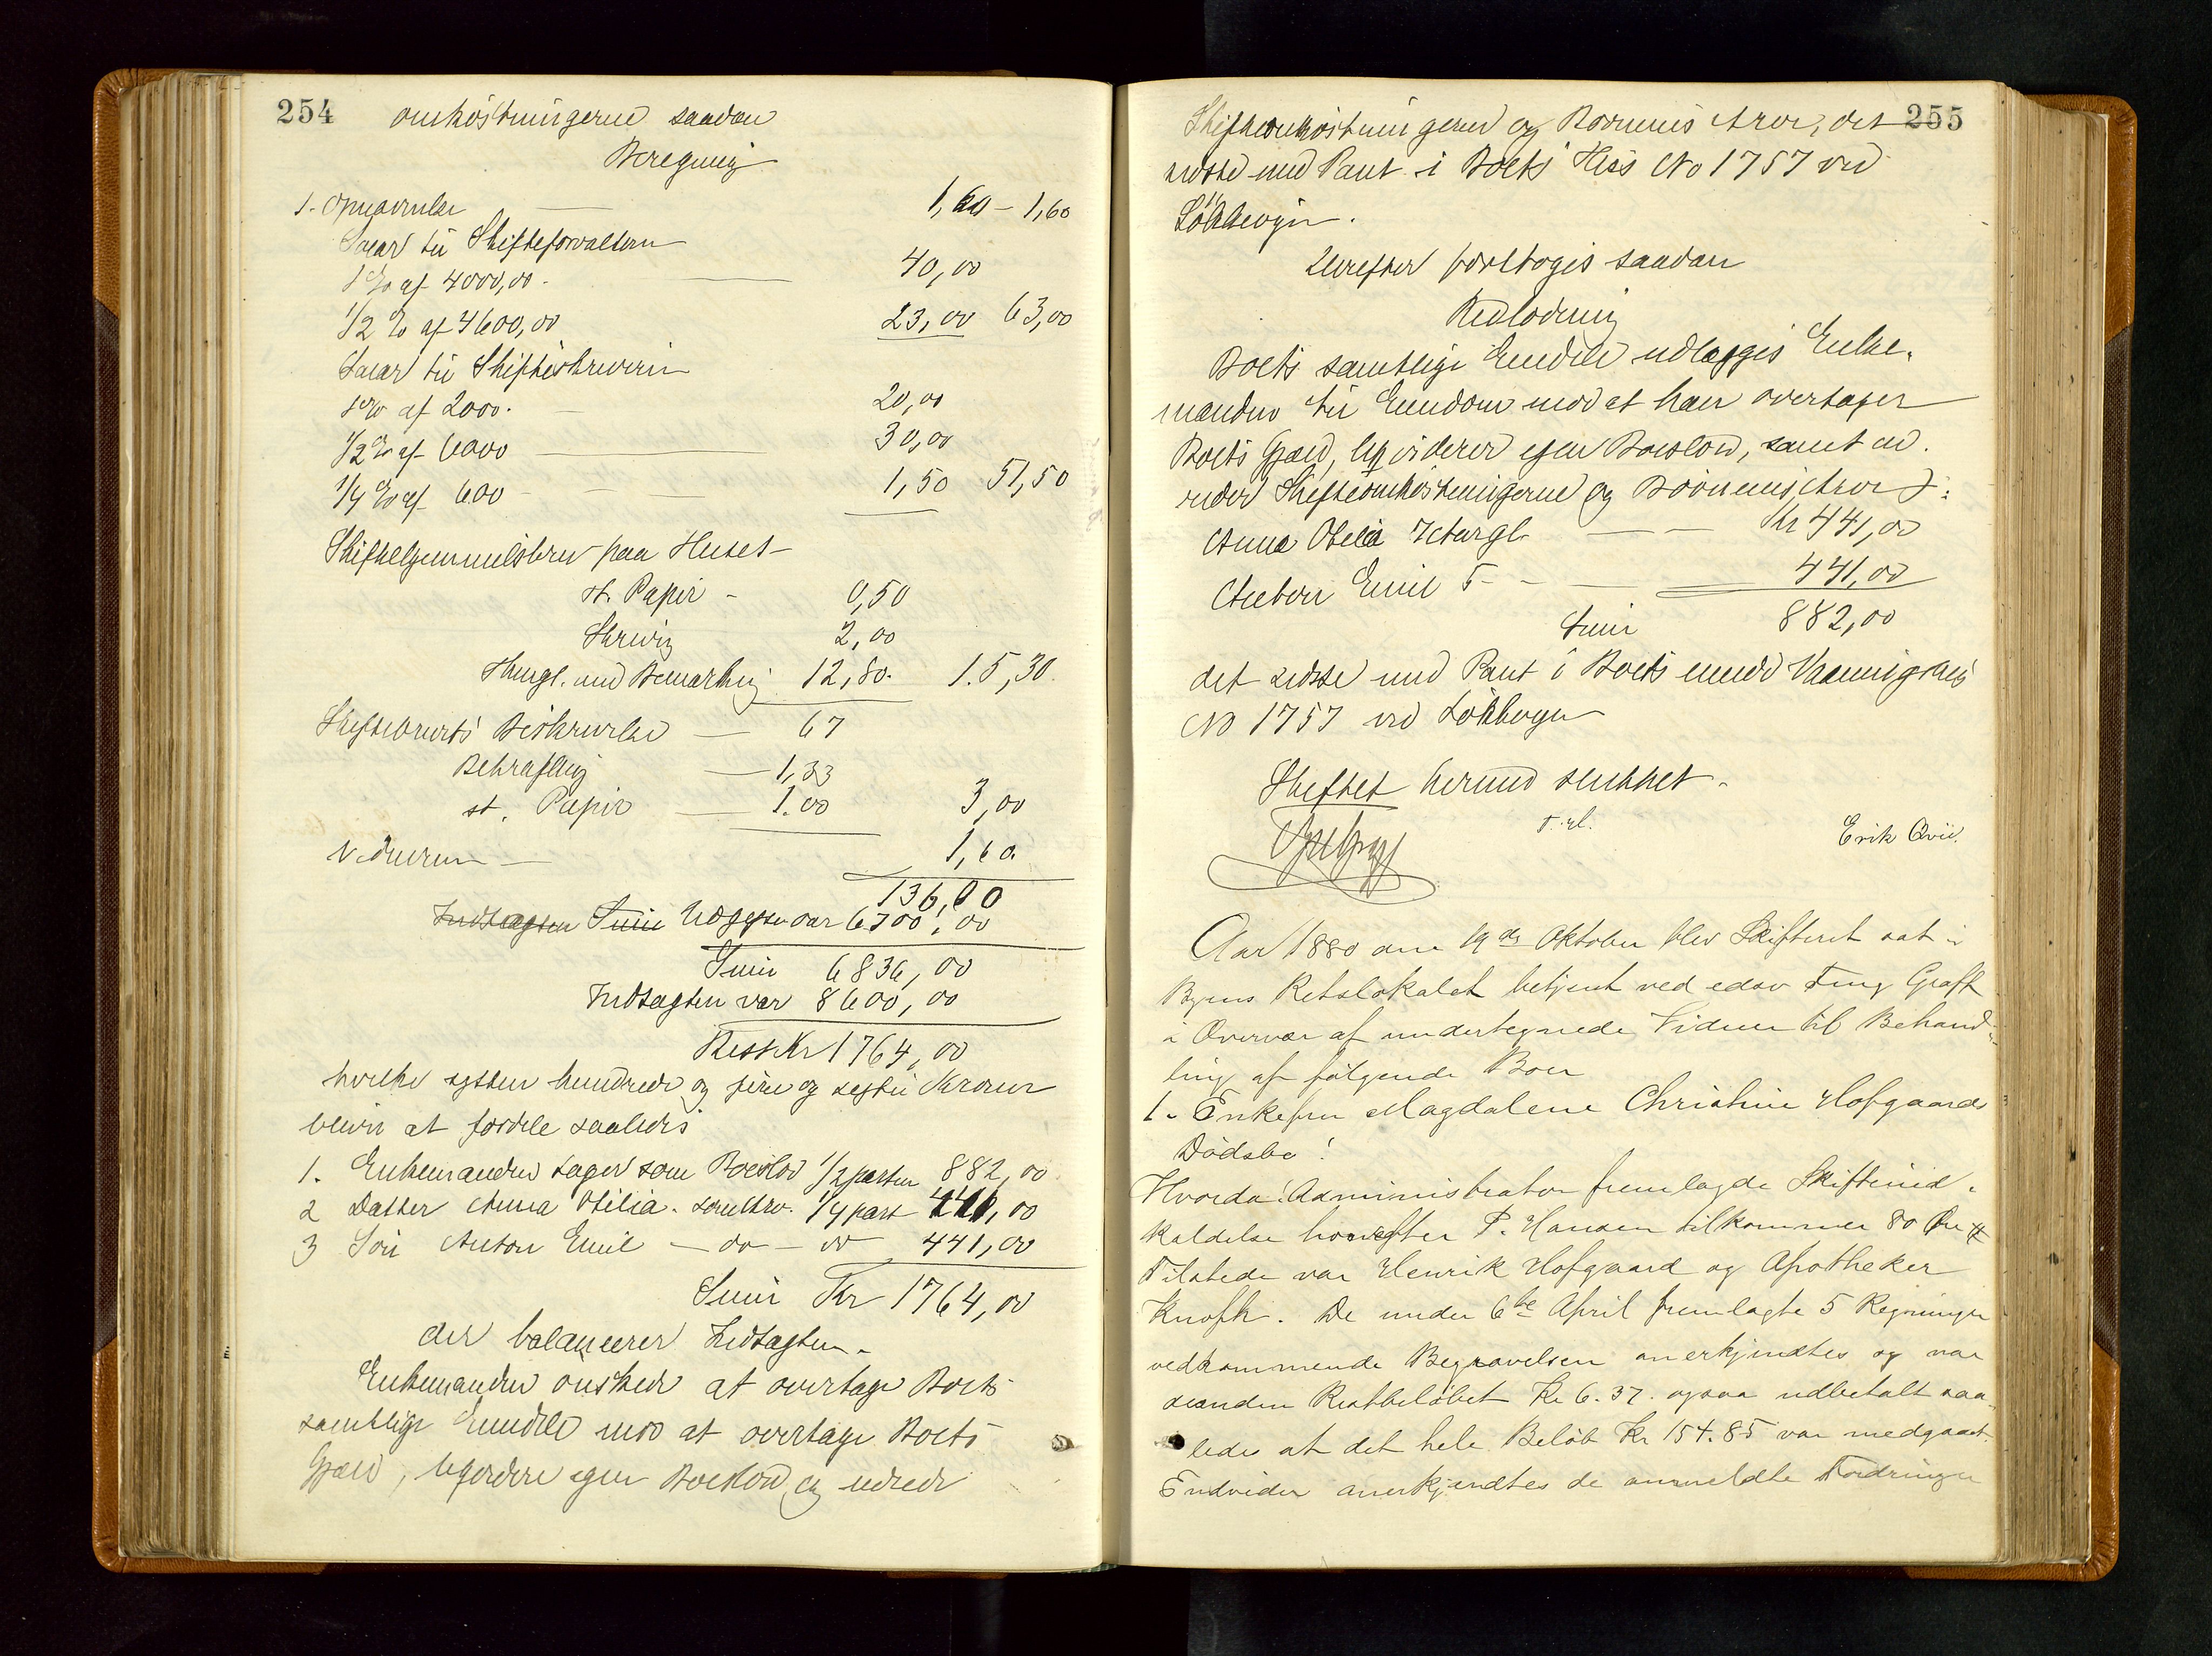 254
omkostningerne saadan
Beregning
1. Opnævnelse — 1,60 – 1,60
Salær til Skifteforvalteren
1 % af 4000,00. — 40,00
1/2 % af 4600,00 23,00 63,00
Salær til Skifteskriveren
1 % af 2000. — 20,00
1/2 % af 6000 — 30,00
1/4 % af 600 — 1,50 51,50
Skifte paa Huset
st. Papir – 0,50
Skriving 2,00
Thingl. med Bemærkning 12,80. 15,30.
Skiftebrevets Beskrivelse — 67
Bekræftelse — 1,33
st. Papir — 1.00 3,00
Vidnerne — 1,60.
136,00
Indtægten Summa Udgiften var 6700,00
Summa 6836,00
Indtægten var 8600,00
Rest Kr 1764,00
hvilke sytten hundrede og fire og sexti Kroner
bliver at fordele saaledes
1. Enkemanden tager som Boeslod 1/2 parten 882,00
2 Datter Anna Otilia. som Arv. 1/4 part 441,00
3 Søn Anton Emil — do — do 441,00
Summa Kr 1764,00
der balancerer Indtægten.
Enkemanden ønsker at overtage Boets
samtlige Eiendele mod at overtage Boets
Gjæld, liqvidere egen Boeslod og udrede
255
Skifteomkostningerne og Børnenes Arv, det
sidste med Pant i Boets Hus No 1757 ved
Løkkevejen.
Derefter foretoges saadan
Udlodning
Boets samtlige Eiendele udlægges Enke-
manden til Eiendom mod at han overtager
Boets Gjæld, liqviderer egen Boeslod, samt ud-
reder Skifteomkostningerne og Børnenes Arv:
Anna Otelia — — Kr 441,00
Anton Emil — 441,00
Summa 882,00
det sidste med Pant i Boets Vaaningshus
No 1757 ved Løkkevejen
Skiftet hermed sluttet.
Erik Qvie.
Aar 1880 den 19de Oktober blev Skifteret sat i
Byens Retslokale betjent ved edsv Graff
i Overvær af undertegnede Vidner til Behand-
ling af følgende Boer
1. Enkefru Magdalene Christine Hofgaards
Dødsbo!
Hvorda! Administrator fremlagde Skifteind-
kaldelse hvorefter P. Hansen tilkommer 80 Øre
Tilstede var Henrik Hofgaard og Apotheker
Knoph. De under 6te April fremlagte 5 Regninger
vedkommende Begravelsen anerkjendtes og var
desuden Restbeløbet Kr 6.37. ogsaa udbetalt saa-
ledes at det hele Beløb Kr 154.85 var medgaaet.
Endvidere anerkjendtes de anmeldte Fordringer